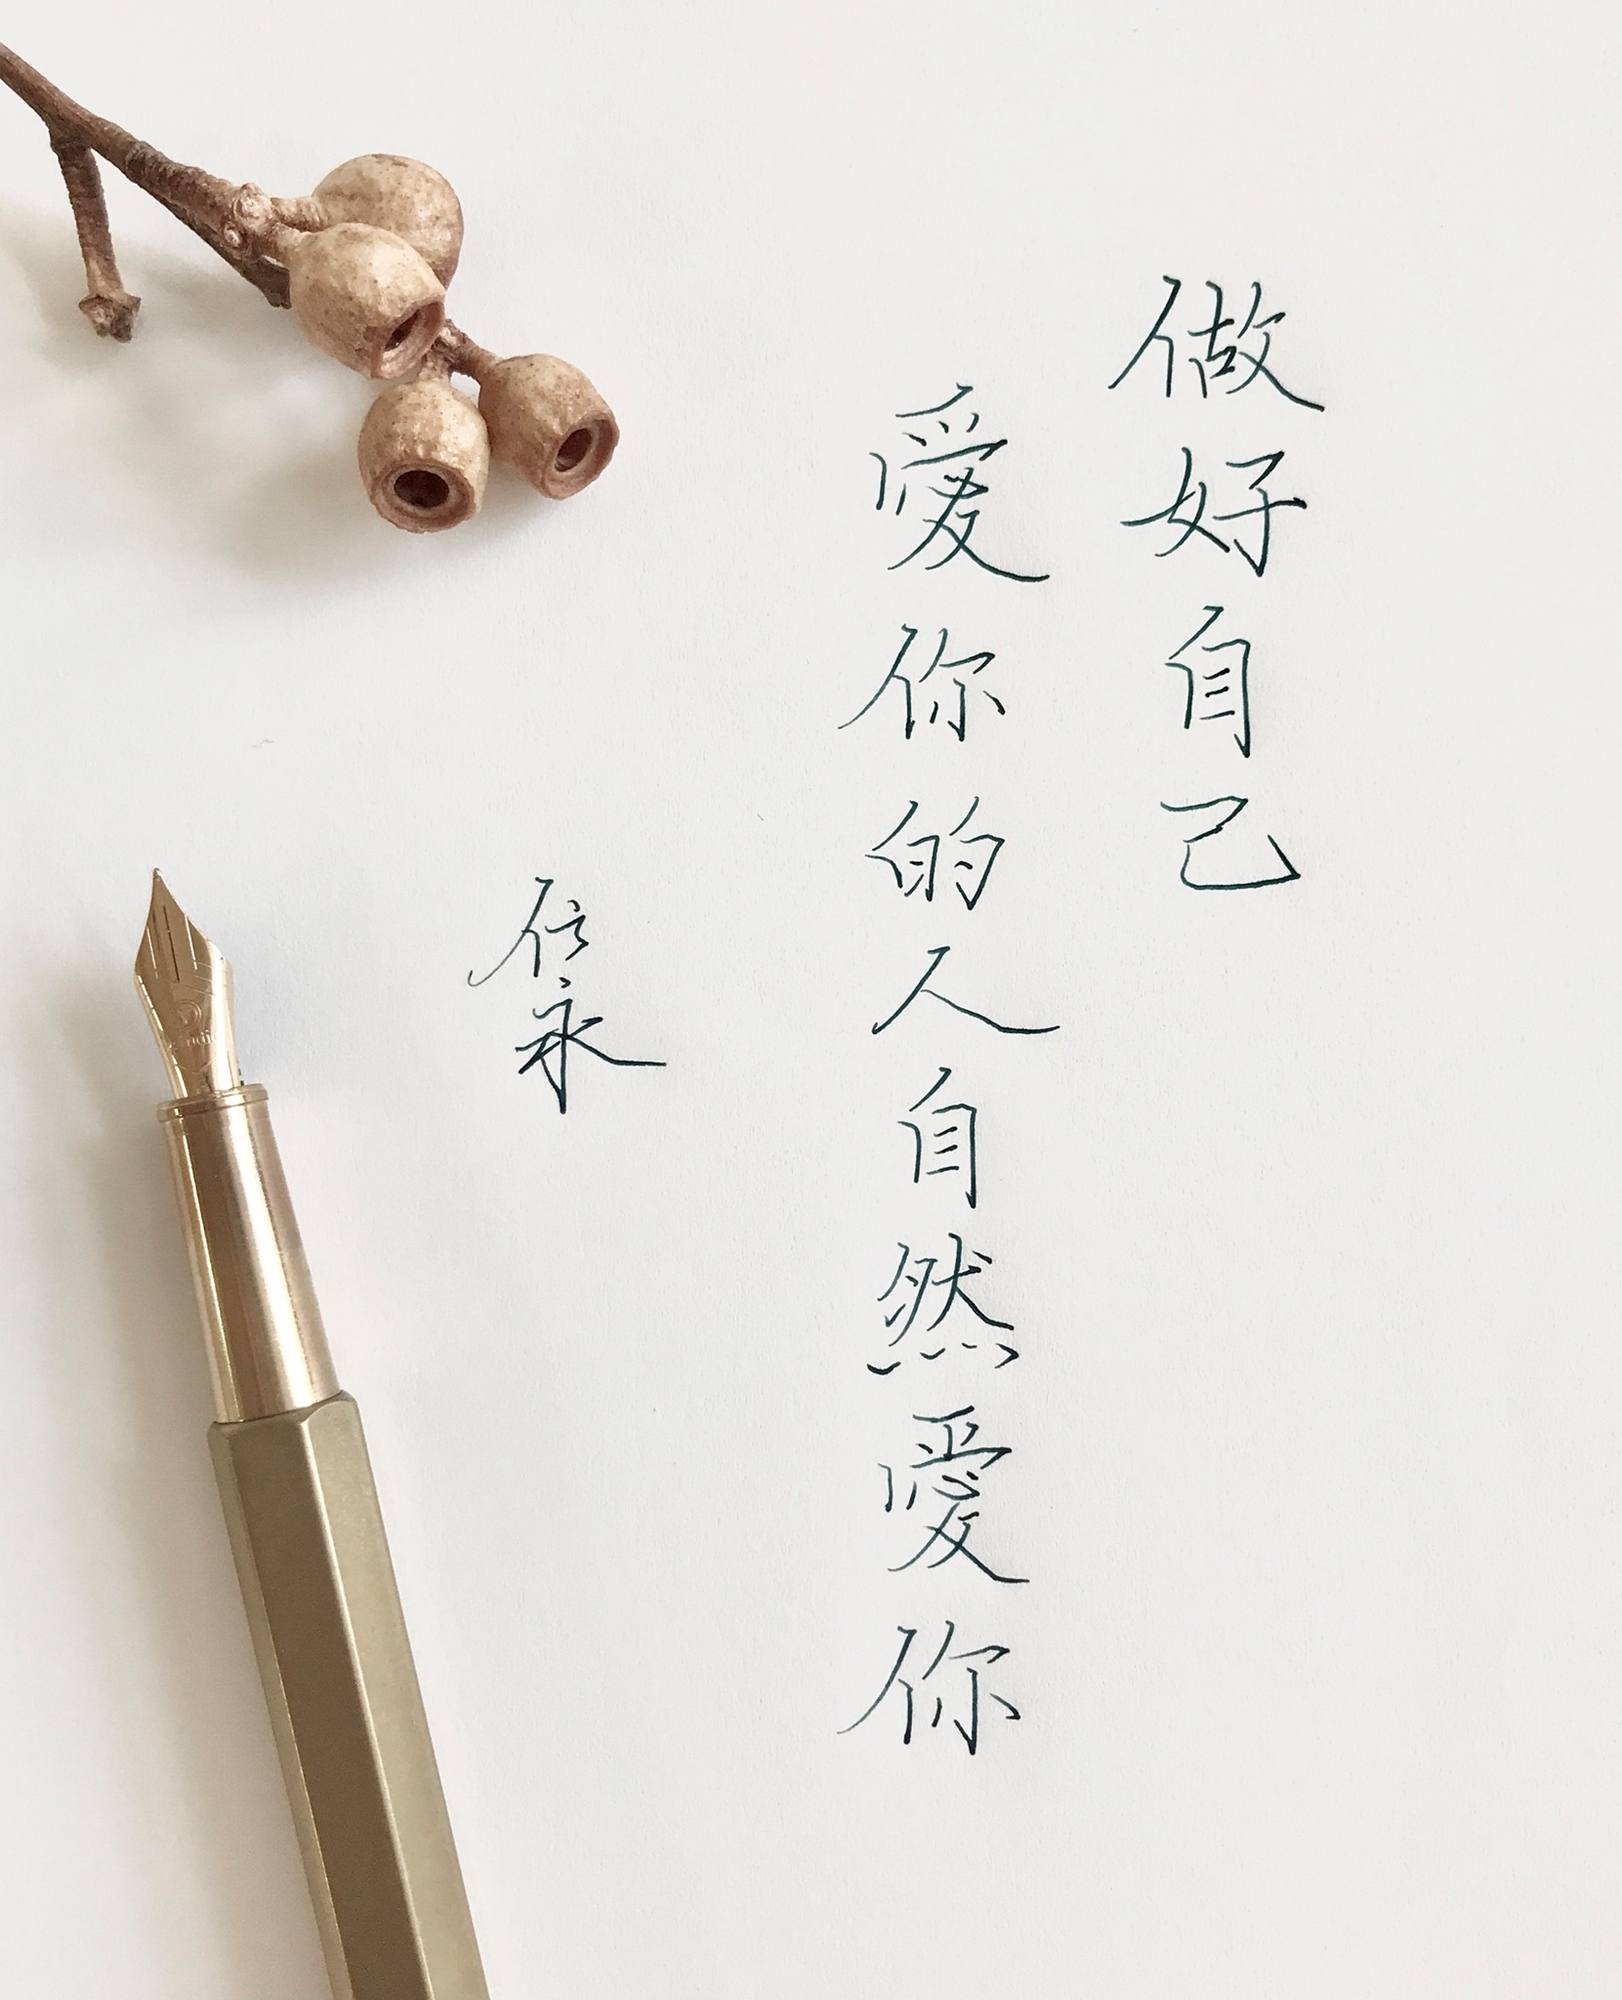 做好自己
愛你的人自然愛你